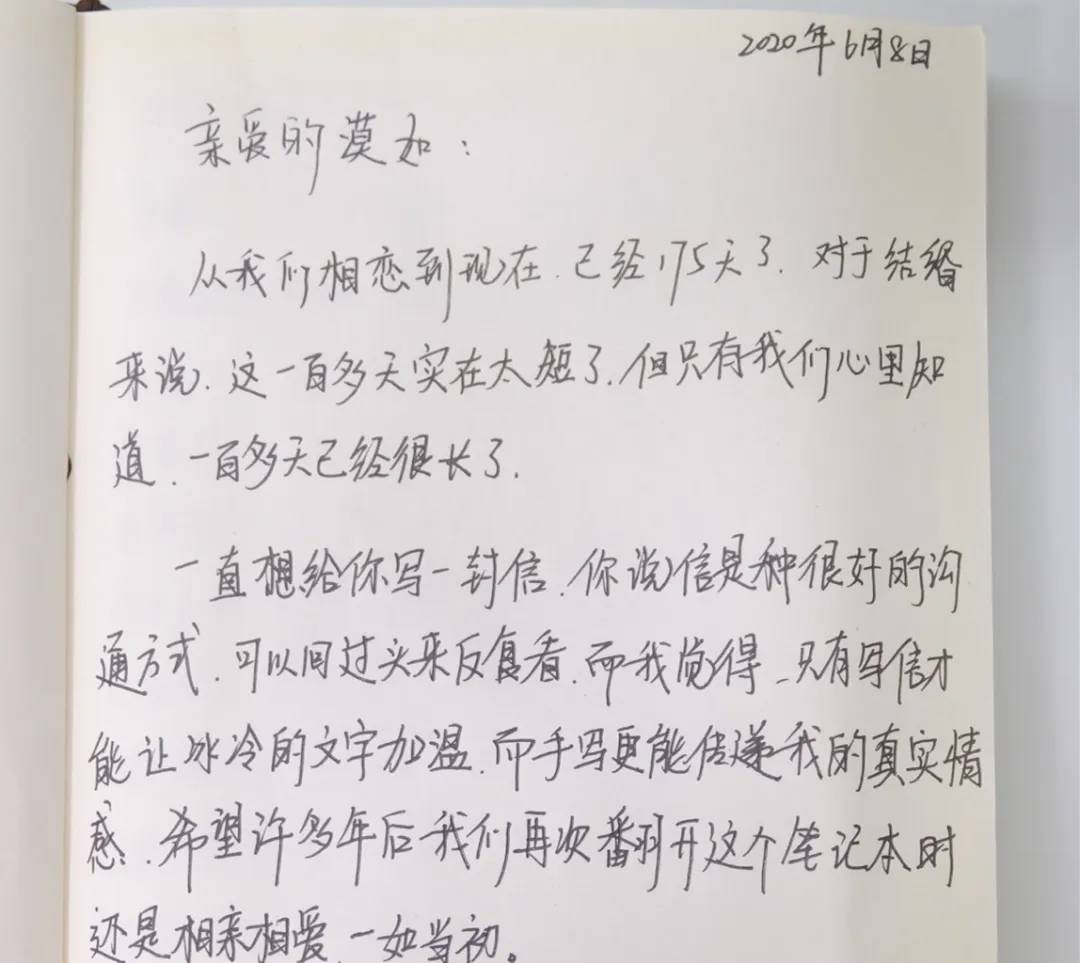 2020年6月8日
亲爱的漠如：
从我们相恋到现在.已经175天了.对于结婚
来说.这一百多天实在太短了.但只有我们心里知
道.一百多天已经很长了.
一直想给你写一封信.你说信是种很好的沟
通方式.可以回过头来反复看.而我觉得.只有写信才
能让冰冷的文字加温.而手写更能传递我的真实情
感.希望许多年后我们再次翻开这个笔记本时
还是相亲相爱.一如当初。